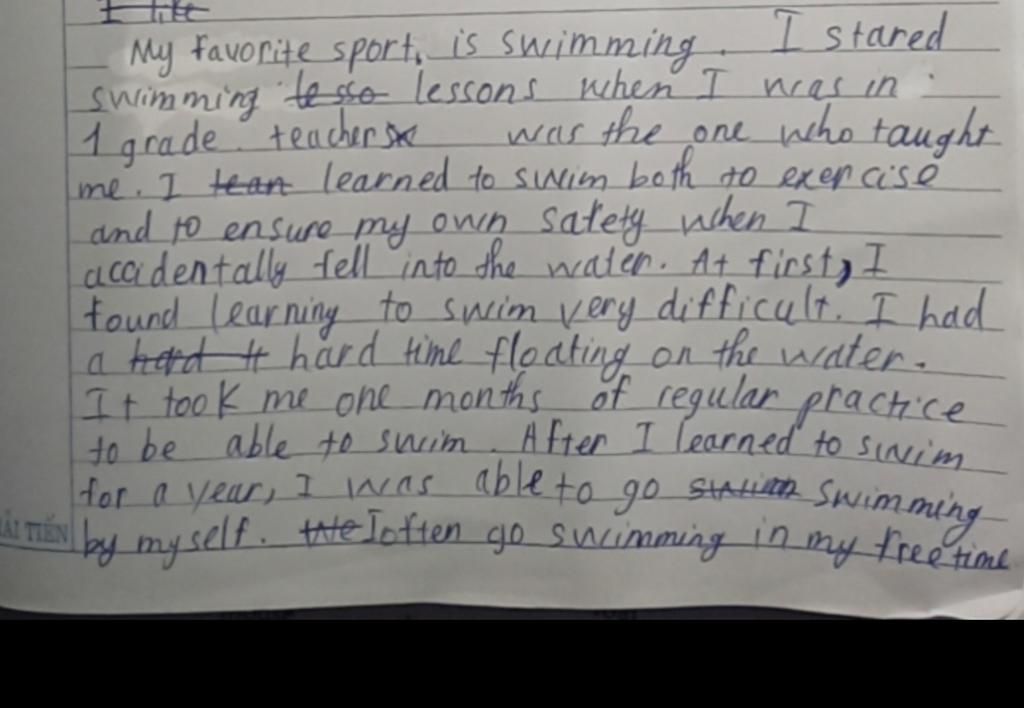 I like
My favorite sport, is swimming. I stared
swimming lesso lessons when I was in
1 grade. teachers was the one who taught
me. I lean learned to swim both to exercise
and to ensure my own safety when I
accidentally fell into the water. At first, I
found learning to swim very difficult. I had
a hard tt hard time floating on the water.
It took me one months of regular practice
to be able to swim. After I learned to swim
for a year, I was able to go swim swimming
by myself. I often go swimming in my free time
ẢI TIẾN